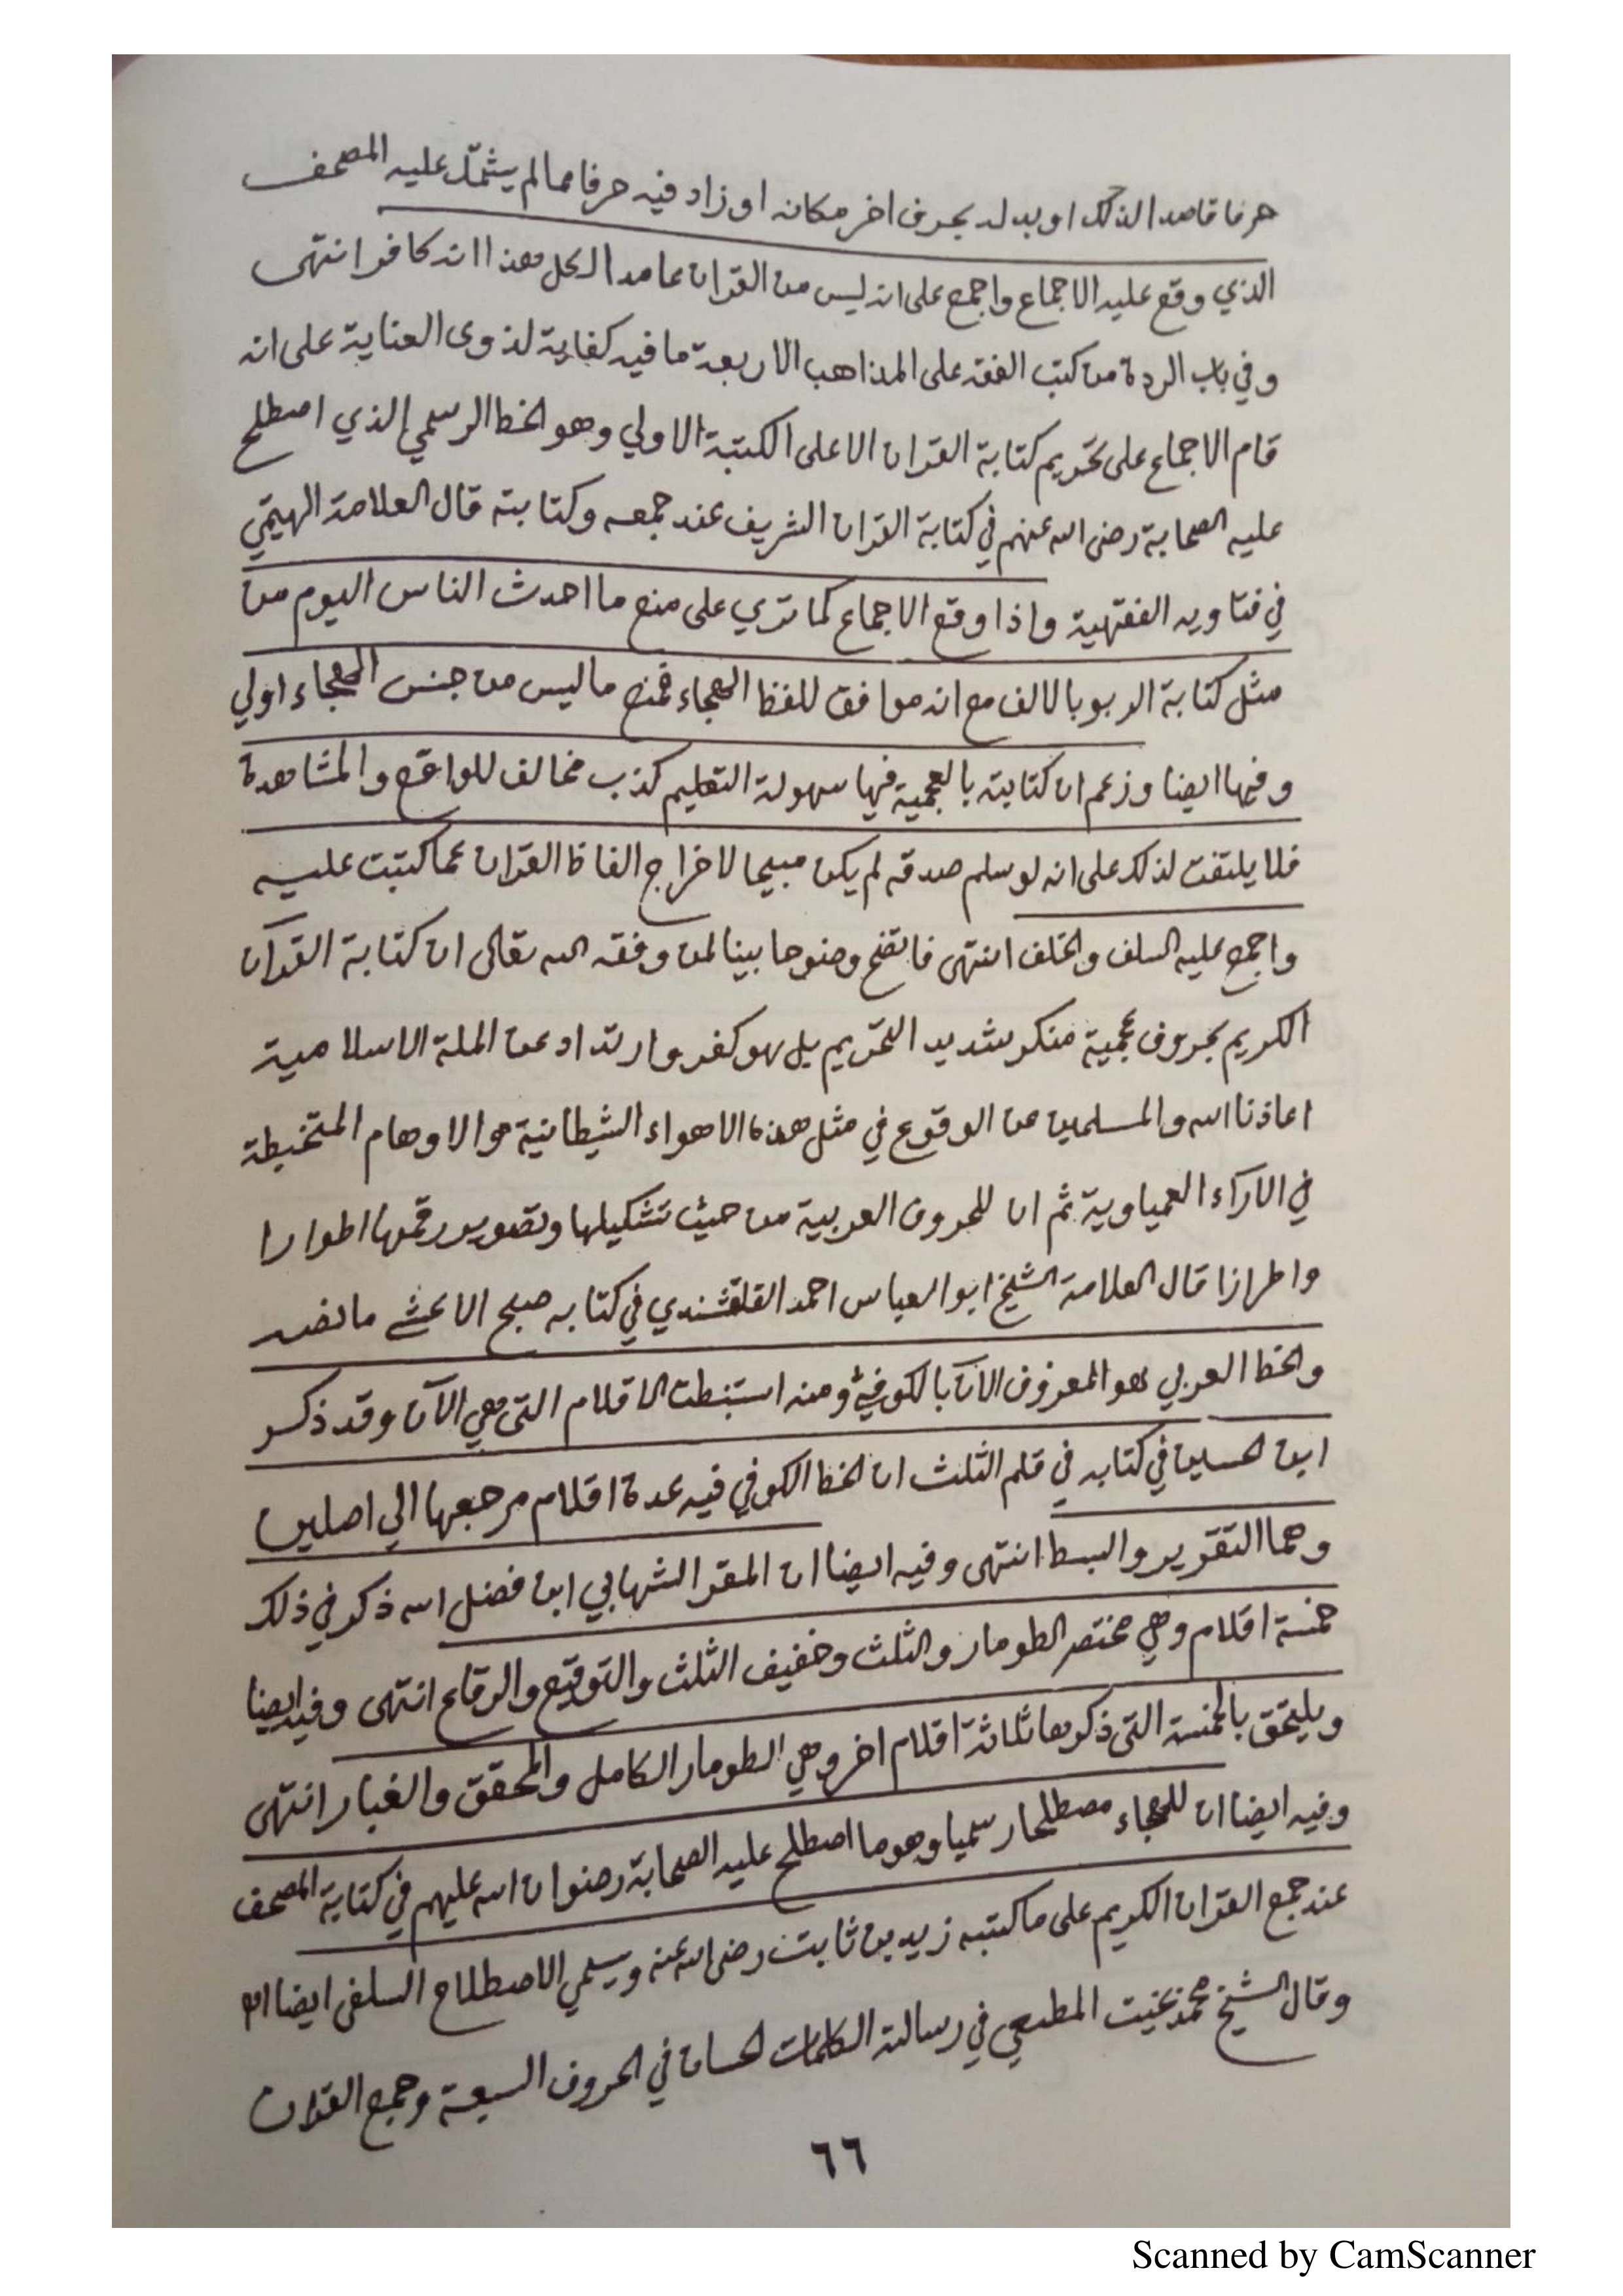 حرفا قاصدا لذلك او بدله بحرف اخر مكانه او زاد فيه حرفا مما لم يشتمل عليه المصحف
الذي وقع عليه الاجماع واجمع على انه ليس من القران عامدا لكل هذا انه كافر انتهى
وفي باب الردة من كتب الفقه على المذاهب الاربعة ما فيه كفاية لذوى العناية على انه
قام الاجماع على تحريم كتابة القران الا على الكتبة الاولي وهو الخط الرسمي الذي اصطلح
عليه الصحابة رضى الله عنهم في كتابة القران الشريف عند جمعه وكتابته قال العلامة الهيتمي
في فتاويه الفقهية واذا وقع الاجماع كما تري على منع ما احدث الناس اليوم من
مثل كتابة الربو بالالف مع انه موافق للفظ الهجاء فمنع ما ليس من جنس الهجاء اولي
وفيها ايضا وزعم ان كتابته بالعجمية فيها سهولة التعليم كذب مخالف للواقع والمشاهدة
فلا يلتفت لذلك على انه لو سلم صدقه لم يكن مبيحا لاخراج الفاظ القران عما كتبت عليه
واجمع عليه السلف والخلف انتهى فاتضح وضوحا بينا لمن وفقه الله تعالى ان كتابة القرآن
الكريم بحروف عجمية منكر شديد التحريم بل هو كفر وارتداد عن الملة الاسلامية
اعاذنا الله والمسلمين عن الوقوع في مثل هذه الاهواء الشيطانية والاوهام المتخبطة
في الآراء العمياوية ثم ان للحروف العربية من حيث تشكيلها وتصوير رقمها اطوارا
واطرازا قال العلامة الشيخ ابو العباس احمد القلقشندي في كتابه صبح الاعشے ما نصه
والخط العربي هو المعروف الآن بالكوفي ومنه استنبطت الاقلام التى هي الآن وقد ذكر
ابن الحسين في كتابه في قلم الثلث ان الخط الكوفي فيه عدة اقلام مرجعها الي اصلين
وهما التقوير والبسط انتهى وفيه ايضا ان المقر الشهابي ابن فضل الله ذكر في ذلك
خمسة اقلام وهي مختصر الطومار والثلث وخفيف الثلث والتوقيع والرقاع انتهى وفيه ايضا
ويلتحق بالخمسة التى ذكرها ثلاثة اقلام اخر وهي الطومار الكامل والمحقق والغبار انتهى
وفيه ايضا ان للهجاء مصطلحا رسميا وهو ما اصطلح عليه الصحابة رضوان الله عليهم في كتابة المصحف
عند جمع القران الكريم على ما كتبه زيد بن ثابت رضى الله عنه ويسمي الاصطلاح السلفى ايضا اه
وقال الشيخ محمد بخيت المطيعي في رسالته الكلمات الحسان في الحروف السبعة وجمع القران
٦٦
Scanned by CamScanner